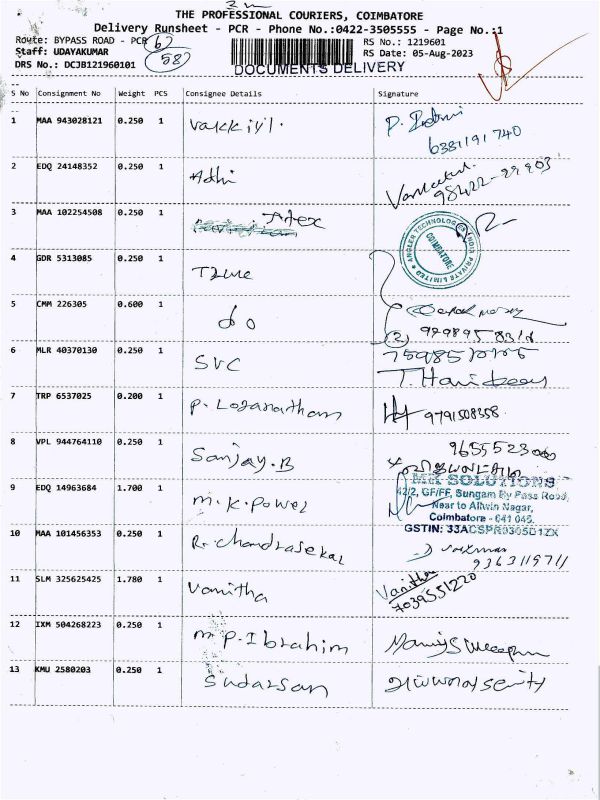 THE PROFESSIONAL COURIERS, COIMBATORE
Delivery Runsheet - PCR - Phone No.:0422-3505555 - Page No.:1
Route: BYPASS ROAD - PCR 62
RS No.: 1219601
Staff: UDAYAKUMAR
582
RS Date: 05-Aug-2023
DRS No.: DCJB121960101
DOCUMENTS DELIVERY
S No Consignment No Weight PCS Consignee Details Signature
1 MAA 943028121 0.250 1 Vakkiyl.
6381191740
2 EDQ 24148352 0.250 1 Adhi
Venkatesh
98422-29903
3 MAA 102254508 0.250 1 Atex
ANGLER TECHNOLOGIES INDIA PRIVATE LIMITED
COIMBATORE
4 GDR 5313085 0.250 1
5 CMM 226305 0.600 1 do
2
6 MLR 40370130 0.250 1 SVC
7 TRP 6537025 0.200 1 P. Loganatham
9791508358
8 VPL 944764110 0.250 1 Sanjay.B
9 EDQ 14963684 1.700 1 M.K. Power
MK SOLUTIONS
42/2, GF/FF, Sungam By Pass Road,
Near to Allwin Nagar,
Coimbatore - 641 045.
GSTIN: 33ACSPR0305D1ZX
10 MAA 101456353 0.250 1 R. Chandrasekar
9363119711
11 SLM 325625425 1.780 1 Vanitha
Vanitha
7039551220
12 IXM 504268223 0.250 1 M.P. Ibrahim
13 KMU 2580203 0.250 1 Sudarsan